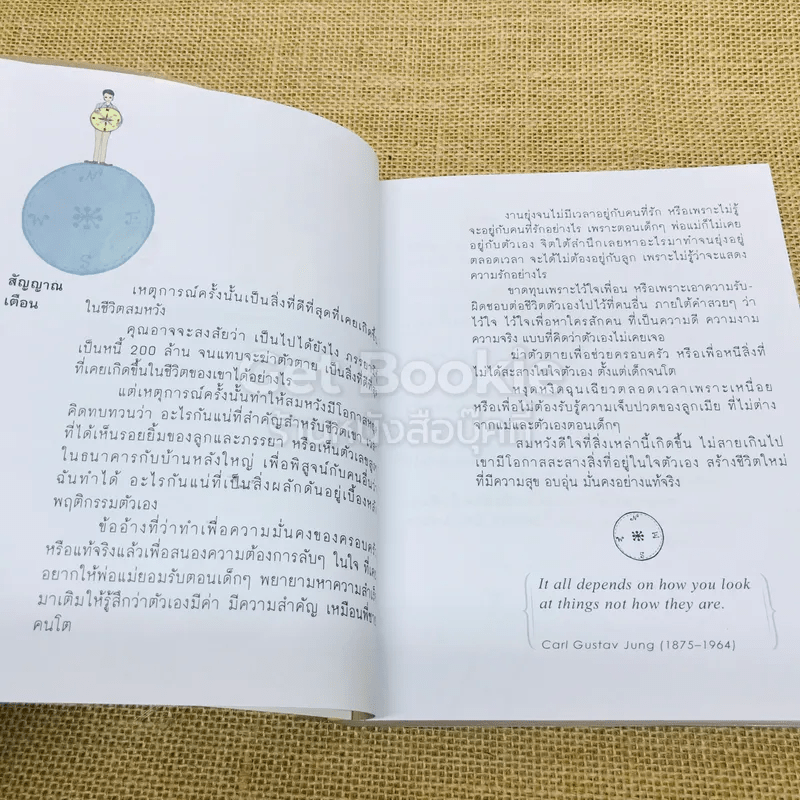 N
W
E
S
สัญญาณ
เตือน
เหตุการณ์ครั้งนั้นเป็นสิ่งที่ดีที่สุดที่เคยเกิดขึ้น
ในชีวิตสมหวัง
คุณอาจจะสงสัยว่า เป็นไปได้ยังไง ภรรยา
เป็นหนี้ 200 ล้าน จนแทบจะฆ่าตัวตาย เป็นสิ่งที่ดีที่สุด
ที่เคยเกิดขึ้นในชีวิตของเขาได้อย่างไร
แต่เหตุการณ์ครั้งนั้นทำให้สมหวังมีโอกาส
คิดทบทวนว่า อะไรกันแน่ที่สำคัญสำหรับชีวิตเขา
ที่ได้เห็นรอยยิ้มของลูกและภรรยา หรือเห็นตัวเลข
ในธนาคารกับบ้านหลังใหญ่ เพื่อพิสูจน์กับคนอื่นว่า
ฉันทำได้ อะไรกันแน่ที่เป็นสิ่งผลักดันอยู่เบื้องหลัง
พฤติกรรมตัวเอง
ข้ออ้างที่ว่าทำเพื่อความมั่นคงของครอบครัว
หรือแท้จริงแล้วเพื่อสนองความต้องการลับๆ ในใจ ที่
อยากให้พ่อแม่ยอมรับตอนเด็กๆ พยายามหาความสำเร็จ
มาเติมให้รู้สึกว่าตัวเองมีค่า มีความสำคัญ เหมือนพี่ชาย
คนโต
งานยุ่งจนไม่มีเวลาอยู่กับคนที่รัก หรือเพราะไม่รู้
จะอยู่กับคนที่รักอย่างไร เพราะตอนเด็กๆ พ่อแม่ก็ไม่เคย
อยู่กับตัวเอง จิตใต้สำนึกเลยหาอะไรมาทำจนยุ่งอยู่
ตลอดเวลา จะได้ไม่ต้องอยู่กับลูก เพราะไม่รู้ว่าจะแสดง
ความรักอย่างไร
ขาดทุนเพราะไว้ใจเพื่อน หรือเพราะเอาความรับ-
ผิดชอบต่อชีวิตตัวเองไปไว้ที่คนอื่น ภายใต้คำสวยๆ ว่า
ไว้ใจ ไว้ใจเพื่อหาใครสักคน ที่เป็นความดี ความงาม
ความจริง แบบที่คิดว่าตัวเองไม่เคยเจอ
ฆ่าตัวตายเพื่อช่วยครอบครัว หรือเพื่อหนีสิ่งที่
ไม่ได้สะสางในใจตัวเอง ตั้งแต่เด็กจนโต
หงุดหงิดฉุนเฉียวตลอดเวลาเพราะเหนื่อย
หรือเพื่อไม่ต้องรับรู้ความเจ็บปวดของลูกเมีย ที่ไม่ต่าง
จากแม่และตัวเองตอนเด็กๆ
สมหวังดีใจที่สิ่งเหล่านี้เกิดขึ้น ไม่สายเกินไป
เขามีโอกาสสะสางสิ่งที่อยู่ในใจตัวเอง สร้างชีวิตใหม่
ที่มีความสุข อบอุ่น มั่นคงอย่างแท้จริง
N
W
E
S
It all depends on how you look
at things not how they are.
Carl Gustav Jung (1875–1964)
Get Booki
ร้านหนังสือบุ๊คกี้